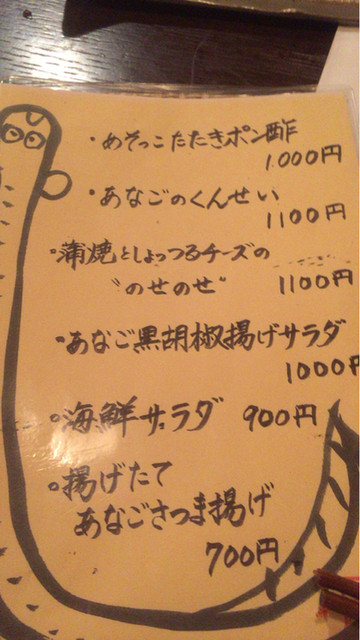 ・めそっこたたきポン酢
1000円
・あなごのくんせい
1100円
・蒲焼としょっつるチーズの
"のせのせ" 1100円
・あなご黒胡椒揚げサラダ
1000円
・海鮮サラダ 900円
・揚げたて
あなごさつま揚げ
700円